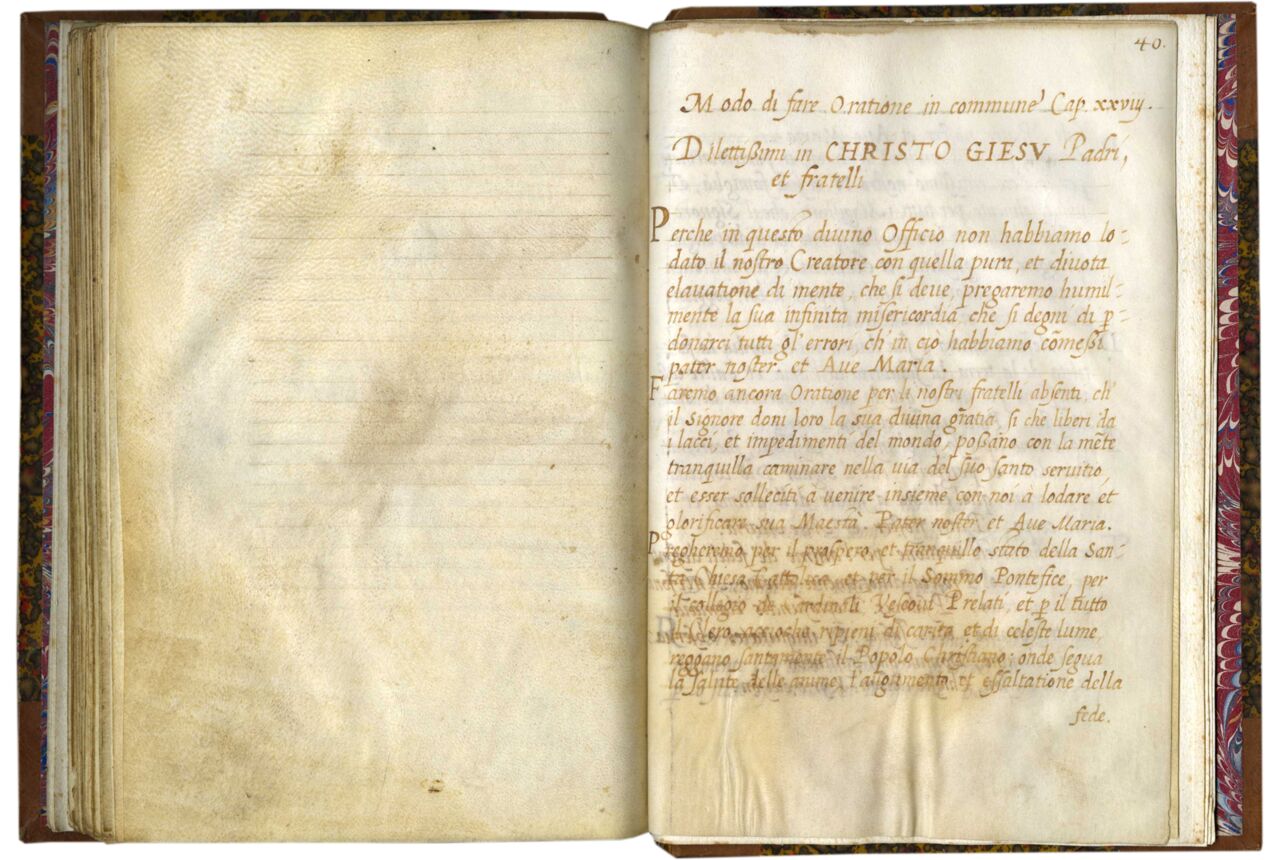 40.
Modo di fare Oratione in commune Cap. xxviij.
Dilettißimi in CHRISTO GIESV Padri,
et fratelli
Perche in questo divino Officio non habbiamo lo-
dato il nostro Creatore con quella pura, et divota
elavatione di mente, che si deve, pregaremo humil-
mente la sua infinita misericordia che si degni di p̄-
donarci tutti gl'errori, ch'in ciò habbiamo com̄eßi
pater noster. et Ave Maria.
Faremo ancora Oratione per li nostri fratelli absenti, ch'
il Signore doni loro la sua divina gratia, si che liberi da
i lacci, et impedimenti del mondo, poßano con la mēte
tranquilla caminare nella via del suo santo servitio,
et esser solleciti à venire insieme con noi à lodare et
glorificare sua Maestà. Pater noster, et Ave Maria.
Pregheremo per il prospero, et tranquillo stato della San-
ta Chiesa Cattolica, et per il Sommo Pontefice, per
il collegio de Cardinali Vescovi Prelati, et p̄ il tutto
il Clero, acciochè ripieni di carità et di celeste lume,
reggano santamente il Popolo Christiano; onde segua
la salute delle anime, l'augumento et essaltatione della
fede.